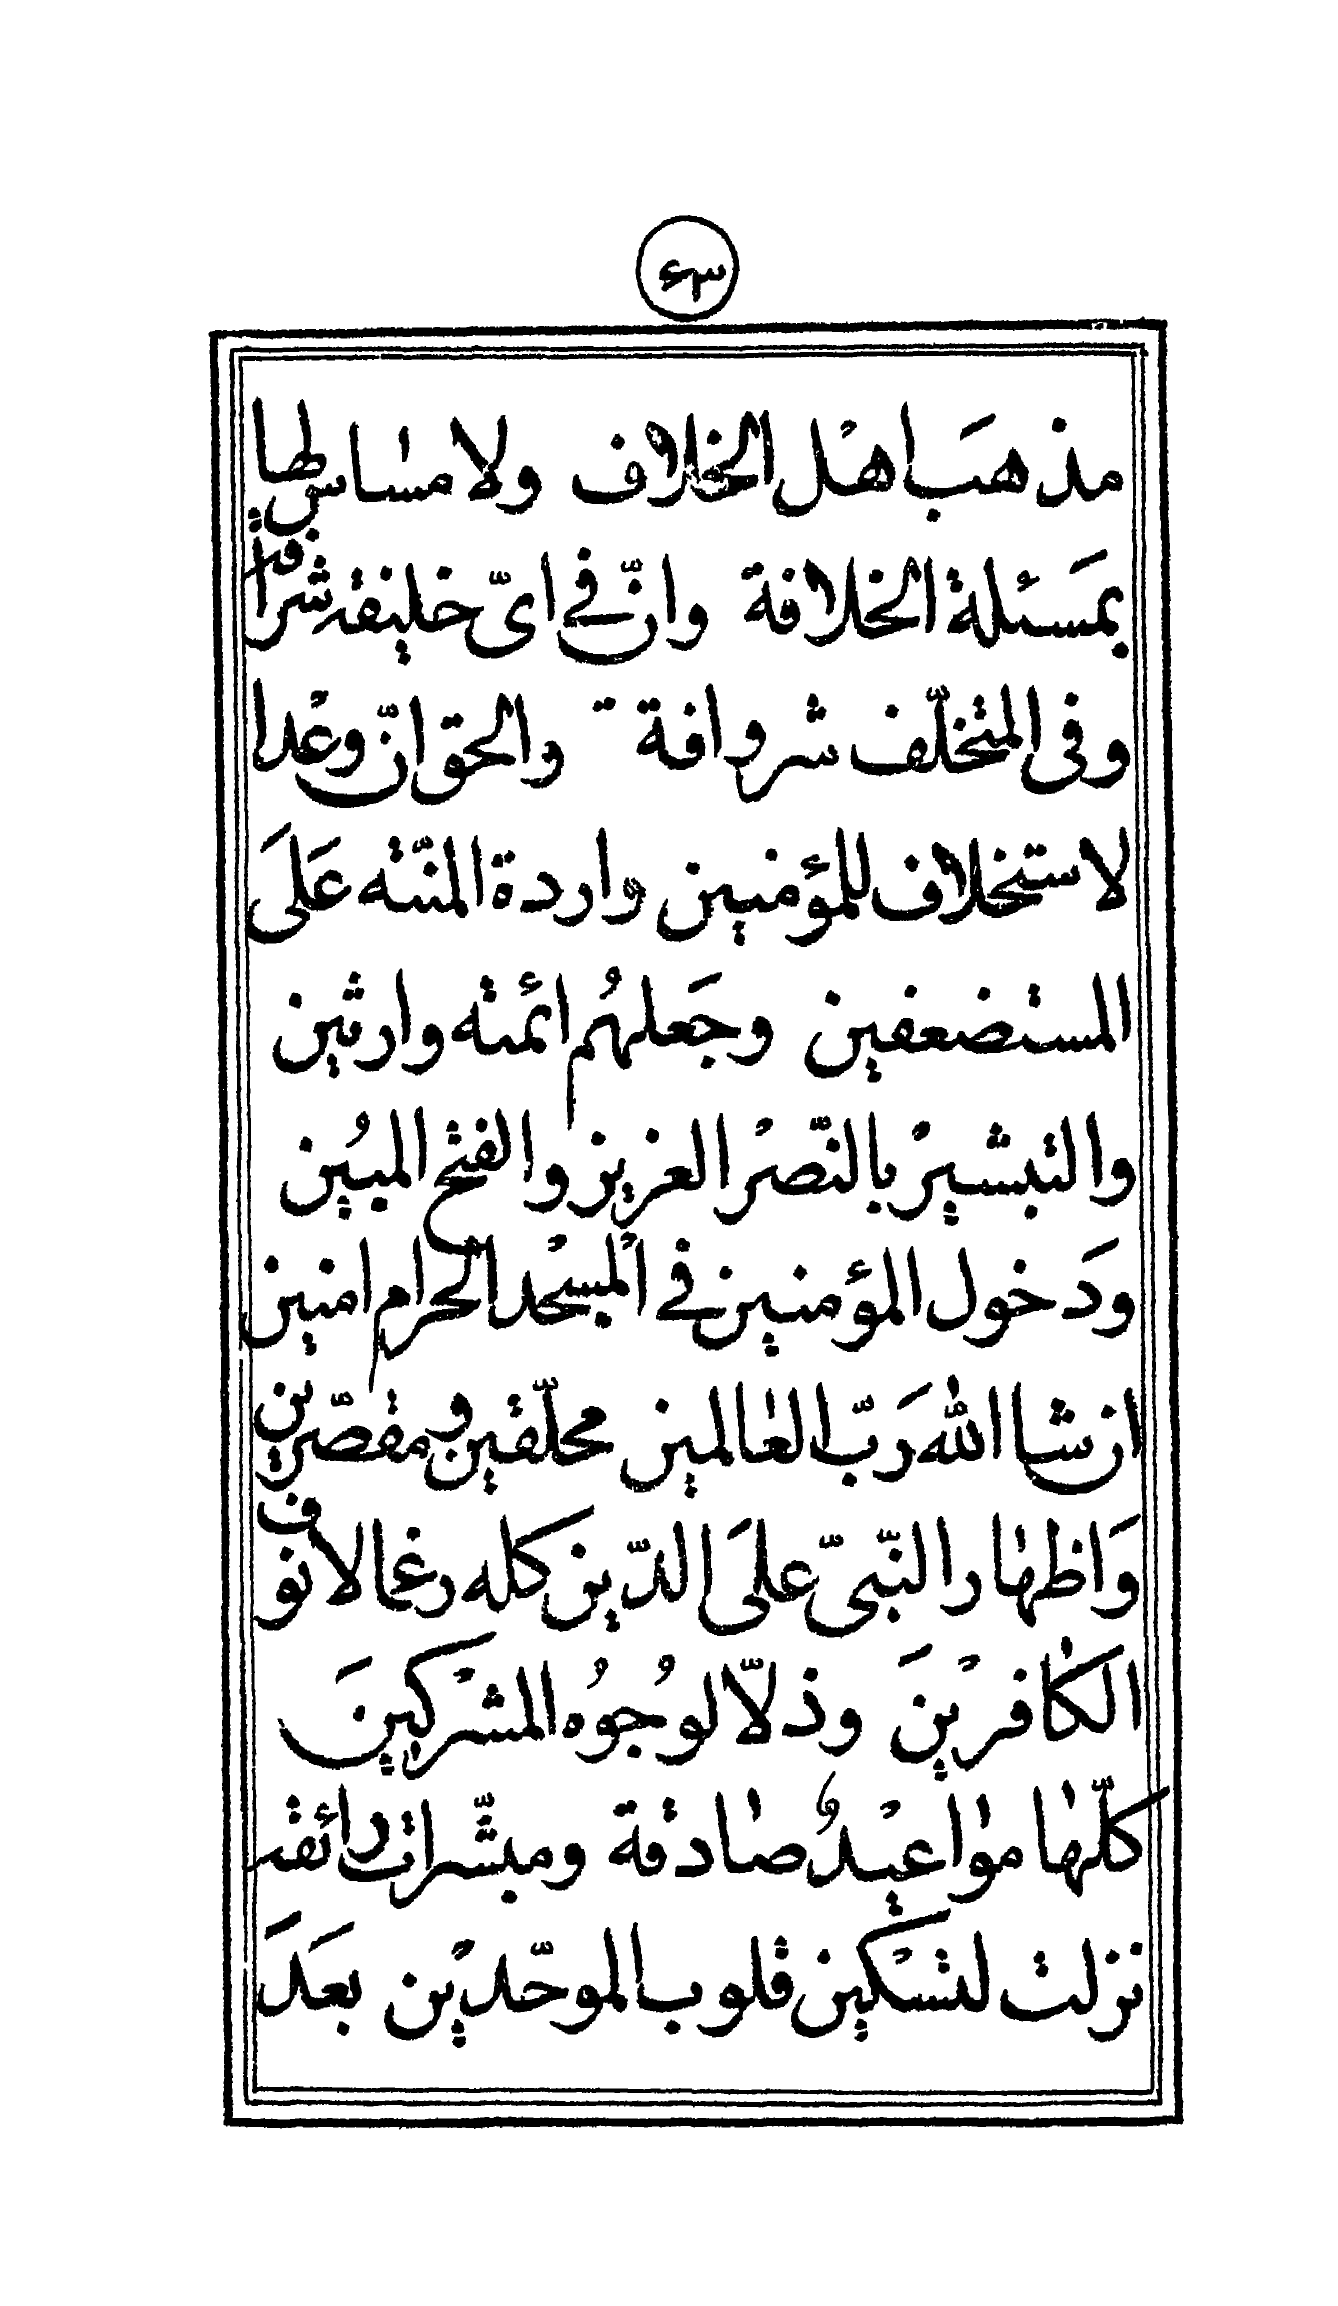 ۳۶
مذهب اهل الخلاف ولا مساس لها
بمسئلة الخلافة وانّ في ايّ خليفة شرافة
وفى المتخلّف شر وافة والحق انّ وعْدا
لاستخلاف للمؤمنين واردة المنّته عَلَى
المستضعفين وجَعلهُم ائمته وارثين
والتبشيرْ بالنّصْر العزيز والفتح المبُين
ودَخول المؤمنين في المْسجْد الحرام امنين
ان شا الله رَبّ العٰالمين محلّقين ومقصّرين
وَاظهٰار النّبىّ علَى الدّين كله رغما لانوف
الكٰافرْينَ وذلاّ لوُجوُه المشرْكينَ
كلّهٰا موٰاعيْدُ صٰادقة ومبشّرات رائقة
نزلت لتسْكين قلوب الموحّديْن بعَدَ